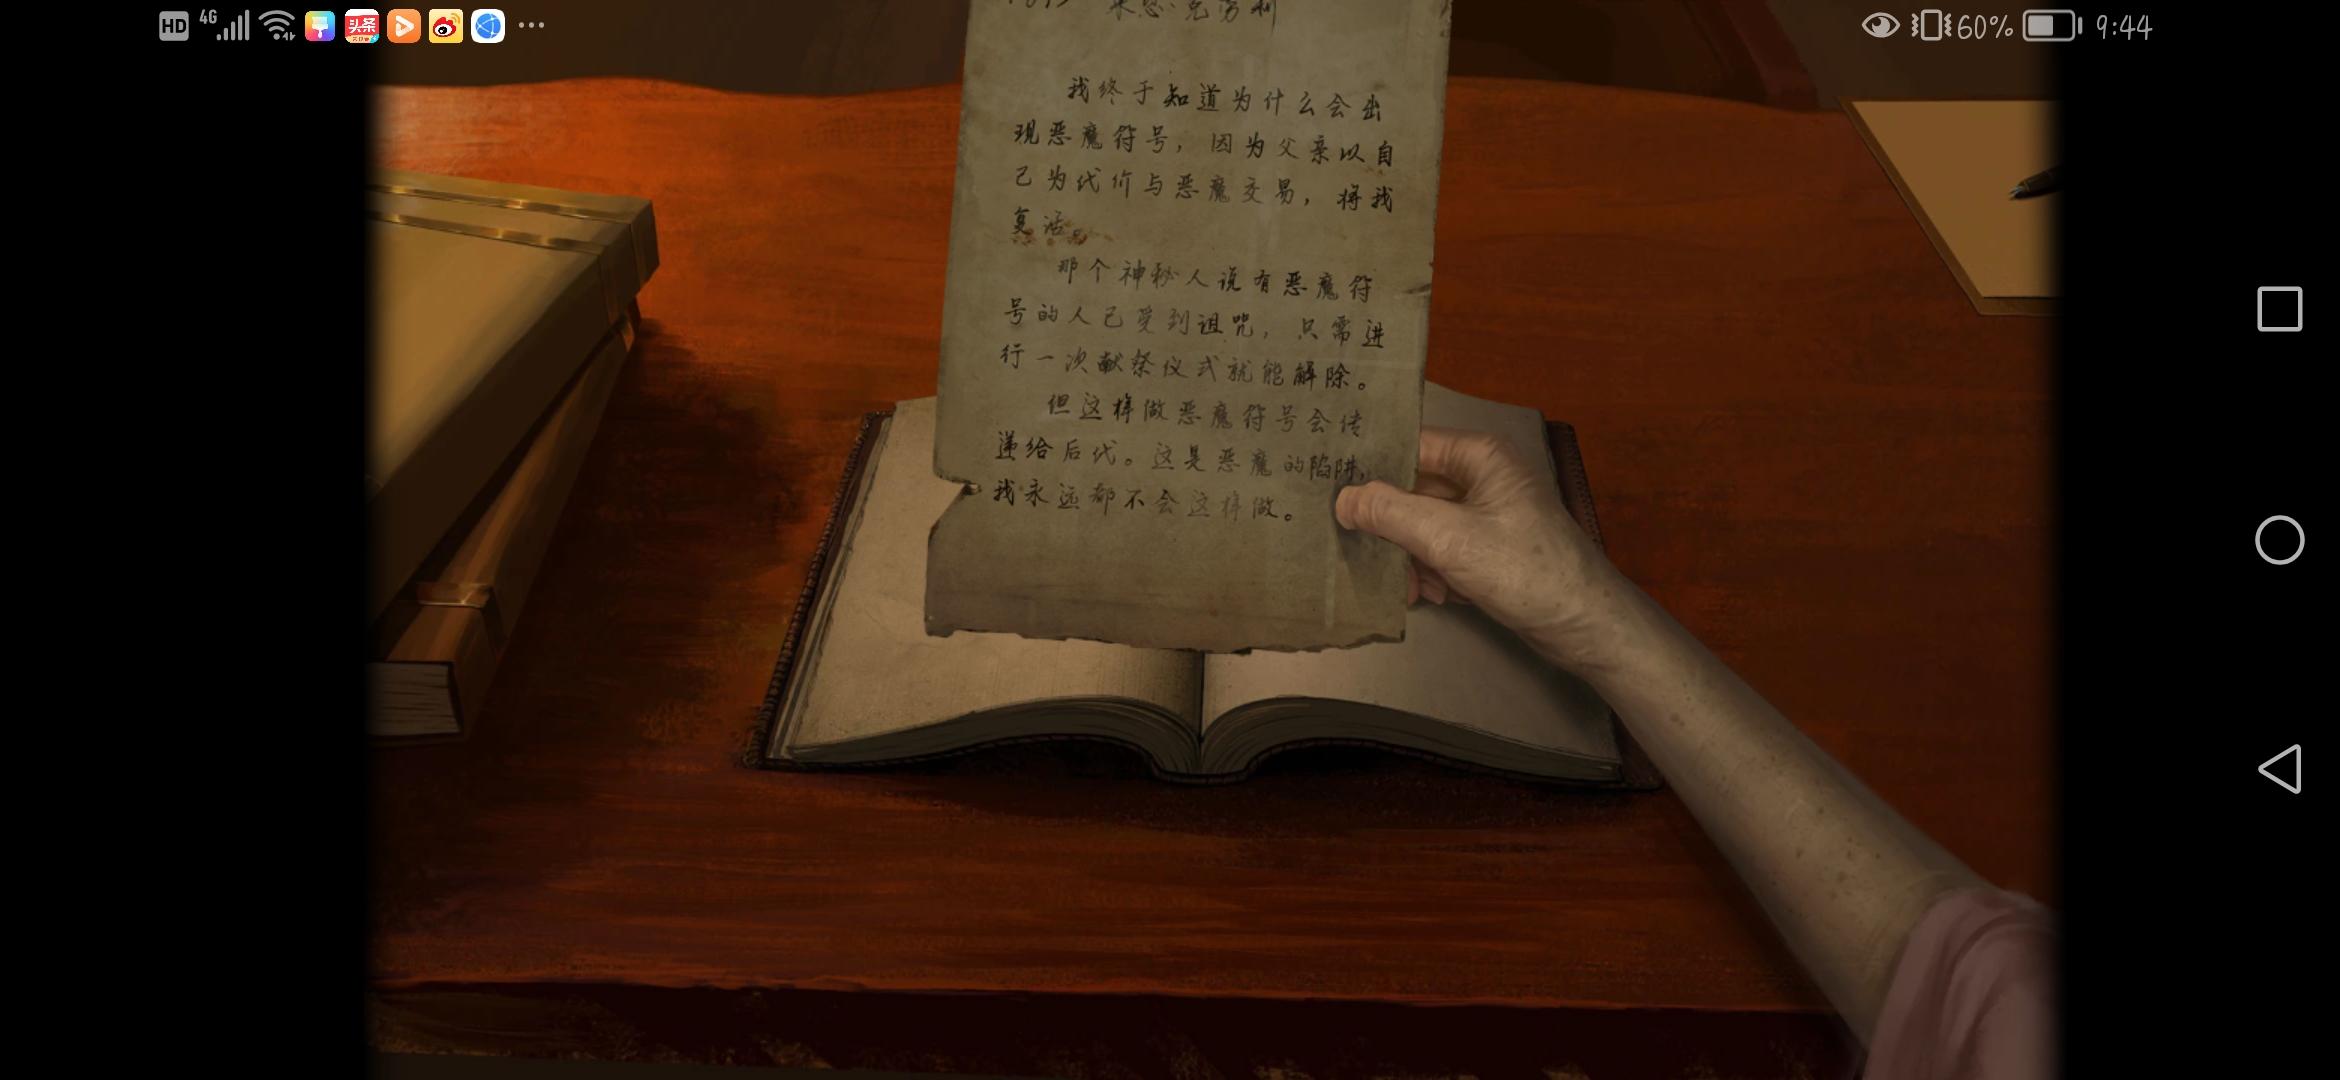 HD 4G 头条 60% 9:44
克劳利
我终于知道为什么会出
现恶魔符号，因为父亲以自
己为代价与恶魔交易，将我
复活。
那个神秘人说有恶魔符
号的人已受到诅咒，只需进
行一次献祭仪式就能解除。
但这样做恶魔符号会传
递给后代。这是恶魔的陷阱，
我永远都不会这样做。